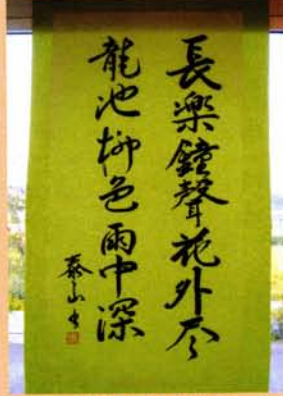 長楽鐘聲花外尽
龍池柳色雨中深
泰山書